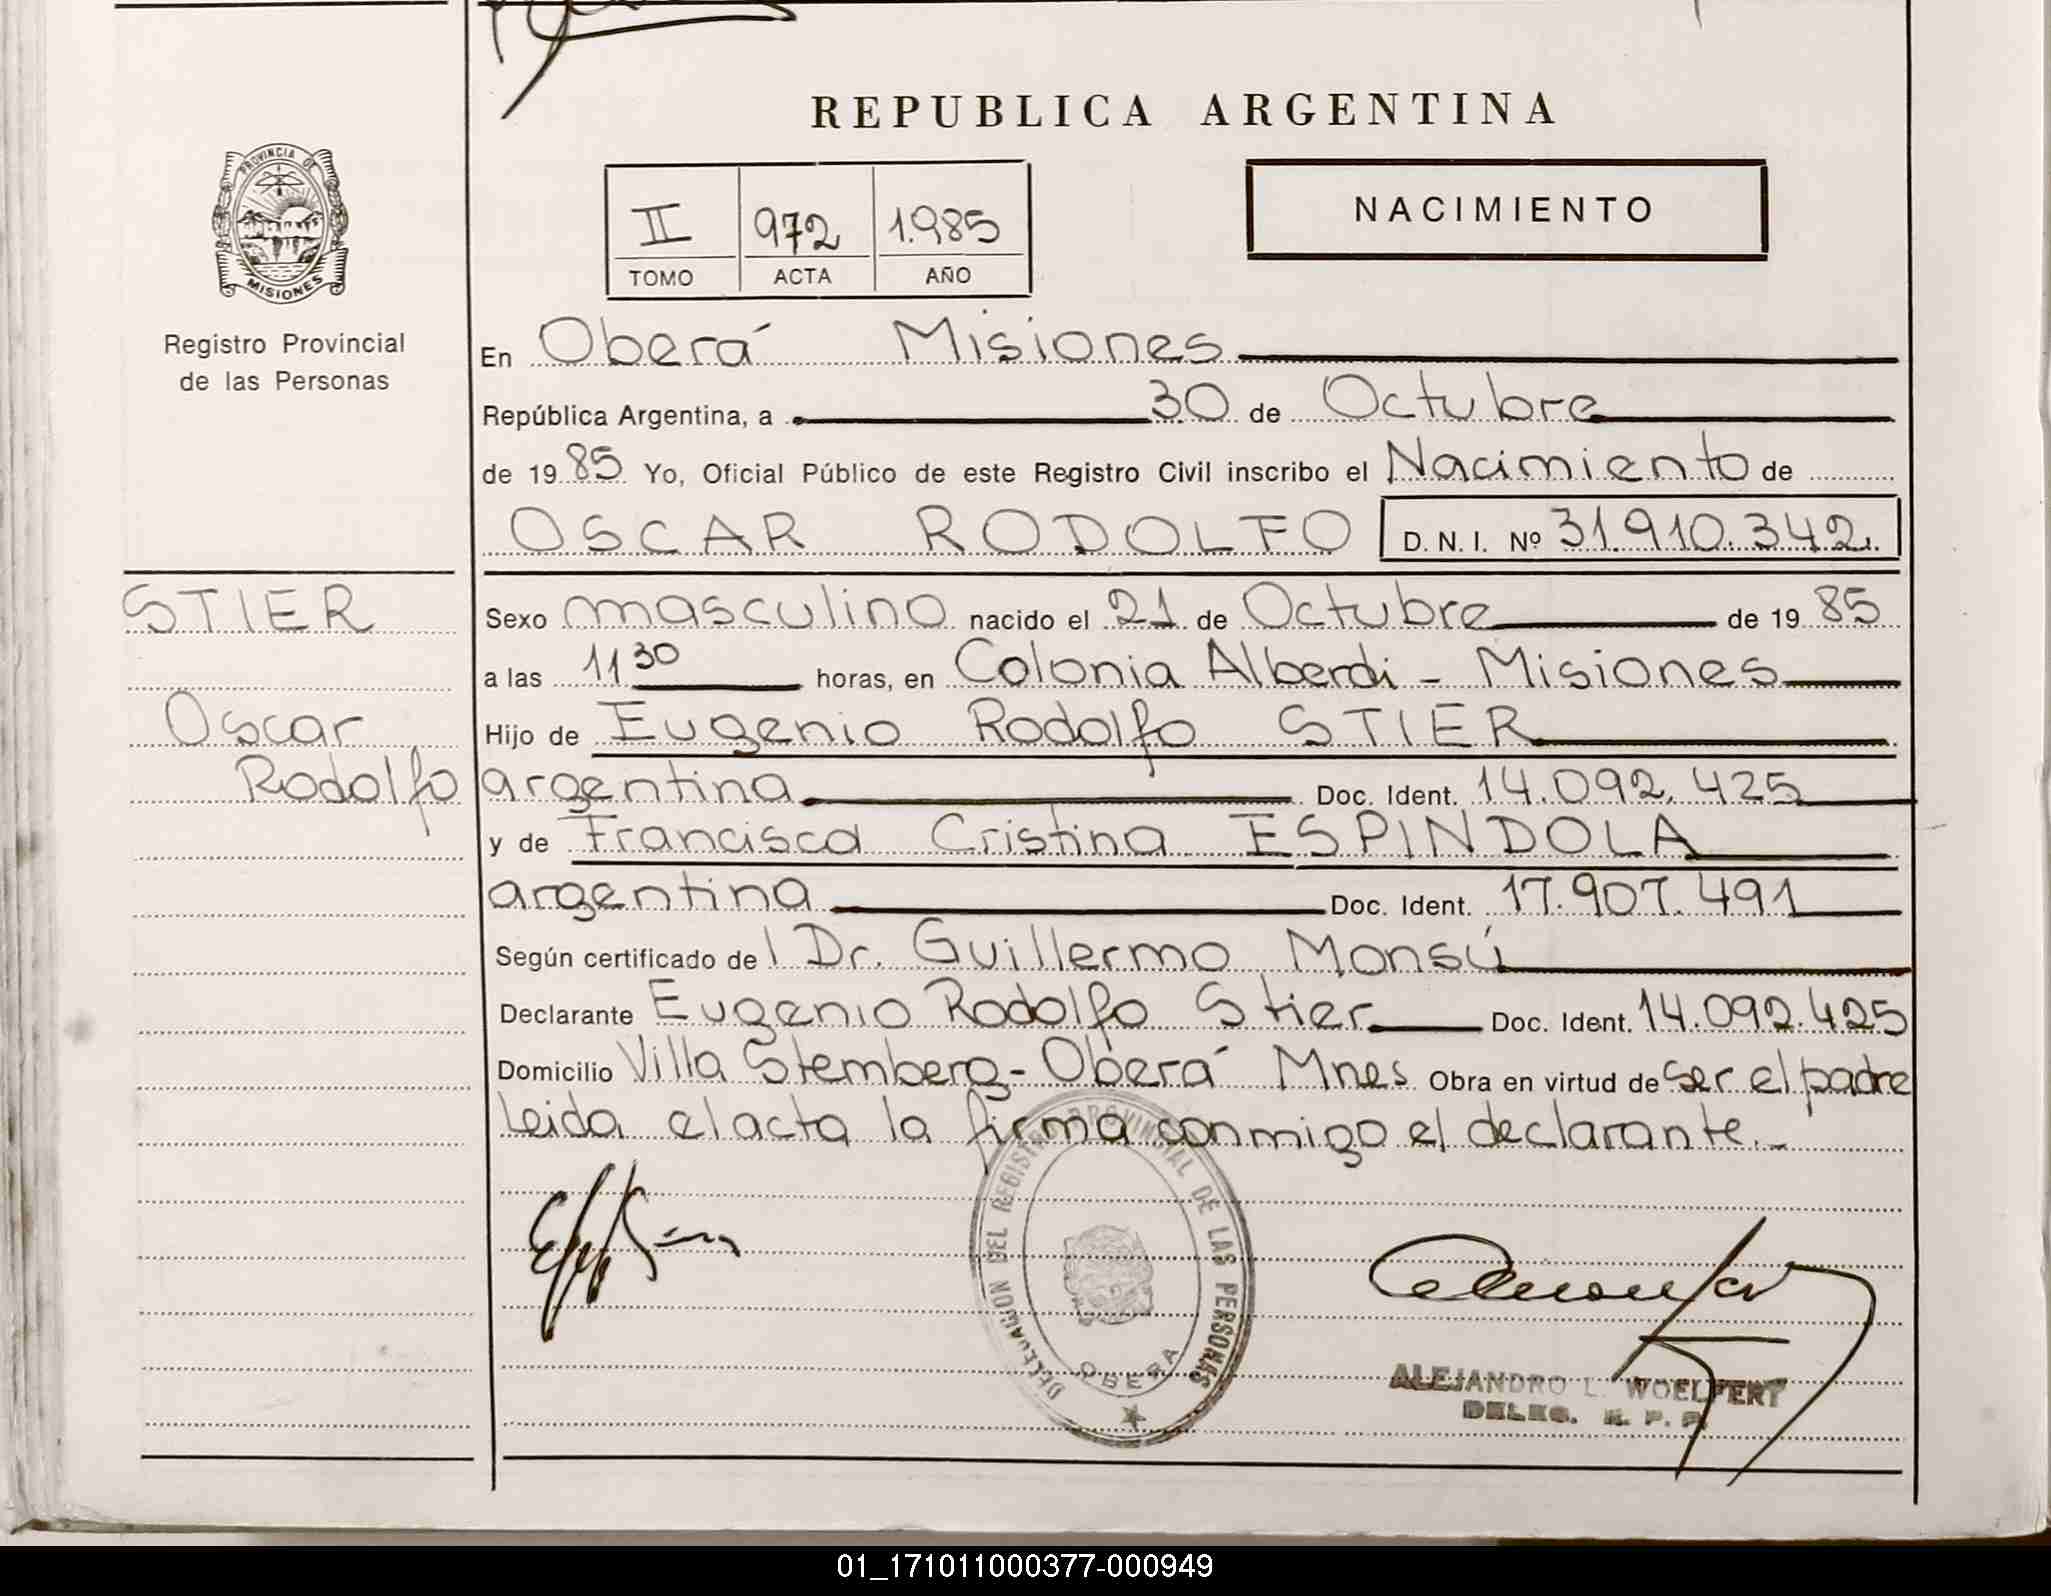 REPUBLICA ARGENTINA
PROVINCIA DE
MISIONES
Registro Provincial
de las Personas
II 972 1.985
TOMO ACTA AÑO
NACIMIENTO
En Oberá Misiones
República Argentina, a 30 de Octubre
de 19 85 Yo, Oficial Público de este Registro Civil inscribo el Nacimiento de
OSCAR RODOLFO D. N. I. Nº 31.910.342.
STIER
Oscar
Rodolfo
Sexo masculino nacido el 21 de Octubre de 19 85
a las 11 30 horas, en Colonia Alberdi - Misiones
Hijo de Eugenio Rodolfo STIER
argentina Doc. Ident. 14.092.425
y de Francisca Cristina ESPINDOLA
argentina Doc. Ident. 17.907.491
Según certificado de l Dr. Guillermo Monsú
Declarante Eugenio Rodolfo Stier Doc. Ident. 14.092.425
Domicilio Villa Stemberg - Oberá Mnes Obra en virtud de ser el padre
Leida el acta la firma conmigo el declarante.-
DELEGACION DEL REGISTRO PROVINCIAL DE LAS PERSONAS
OBERA
ALEJANDRO L. WOELFERT
DELEG. R. P. P.
01_171011000377-000949